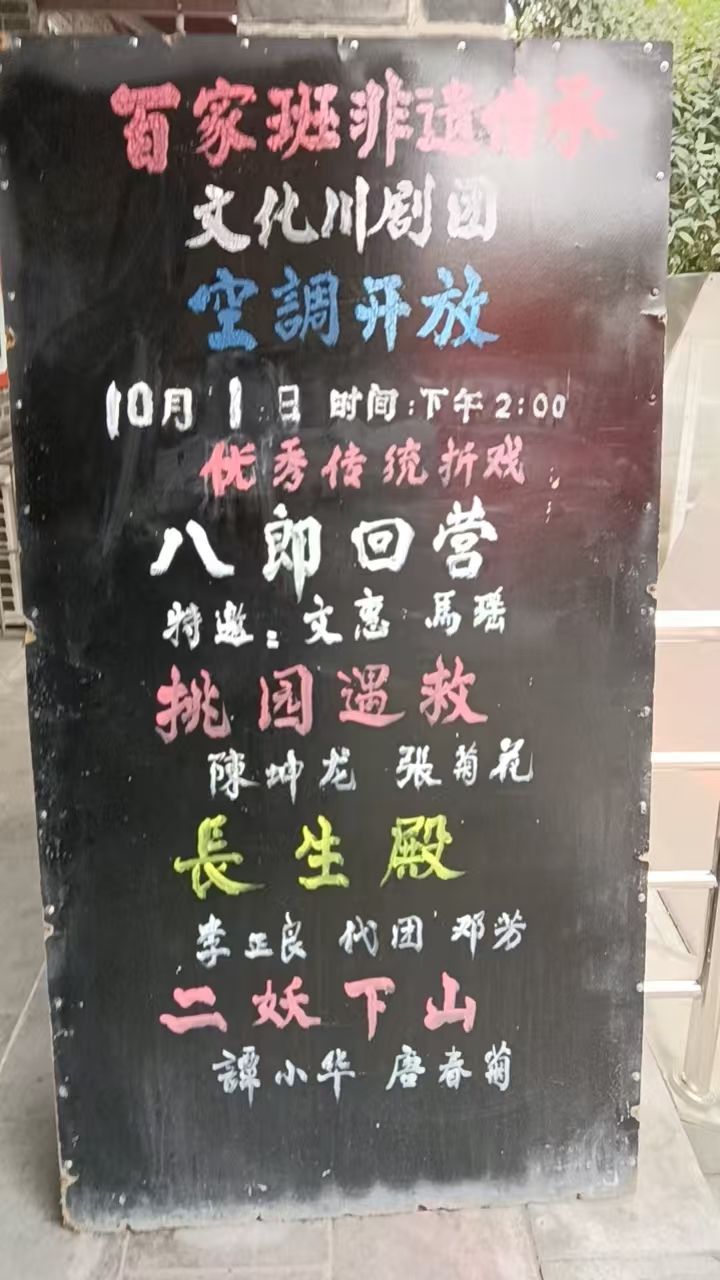 百家班非遗传承
文化川剧团
空調开放
10月1日 时间:下午2:00
优秀传统折戏
八郎回营
特邀:文惠 馬瑶
挑园遇救
陳坤龙 張菊花
長生殿
李正良 代团 邓芳
二妖下山
譚小华 唐春菊